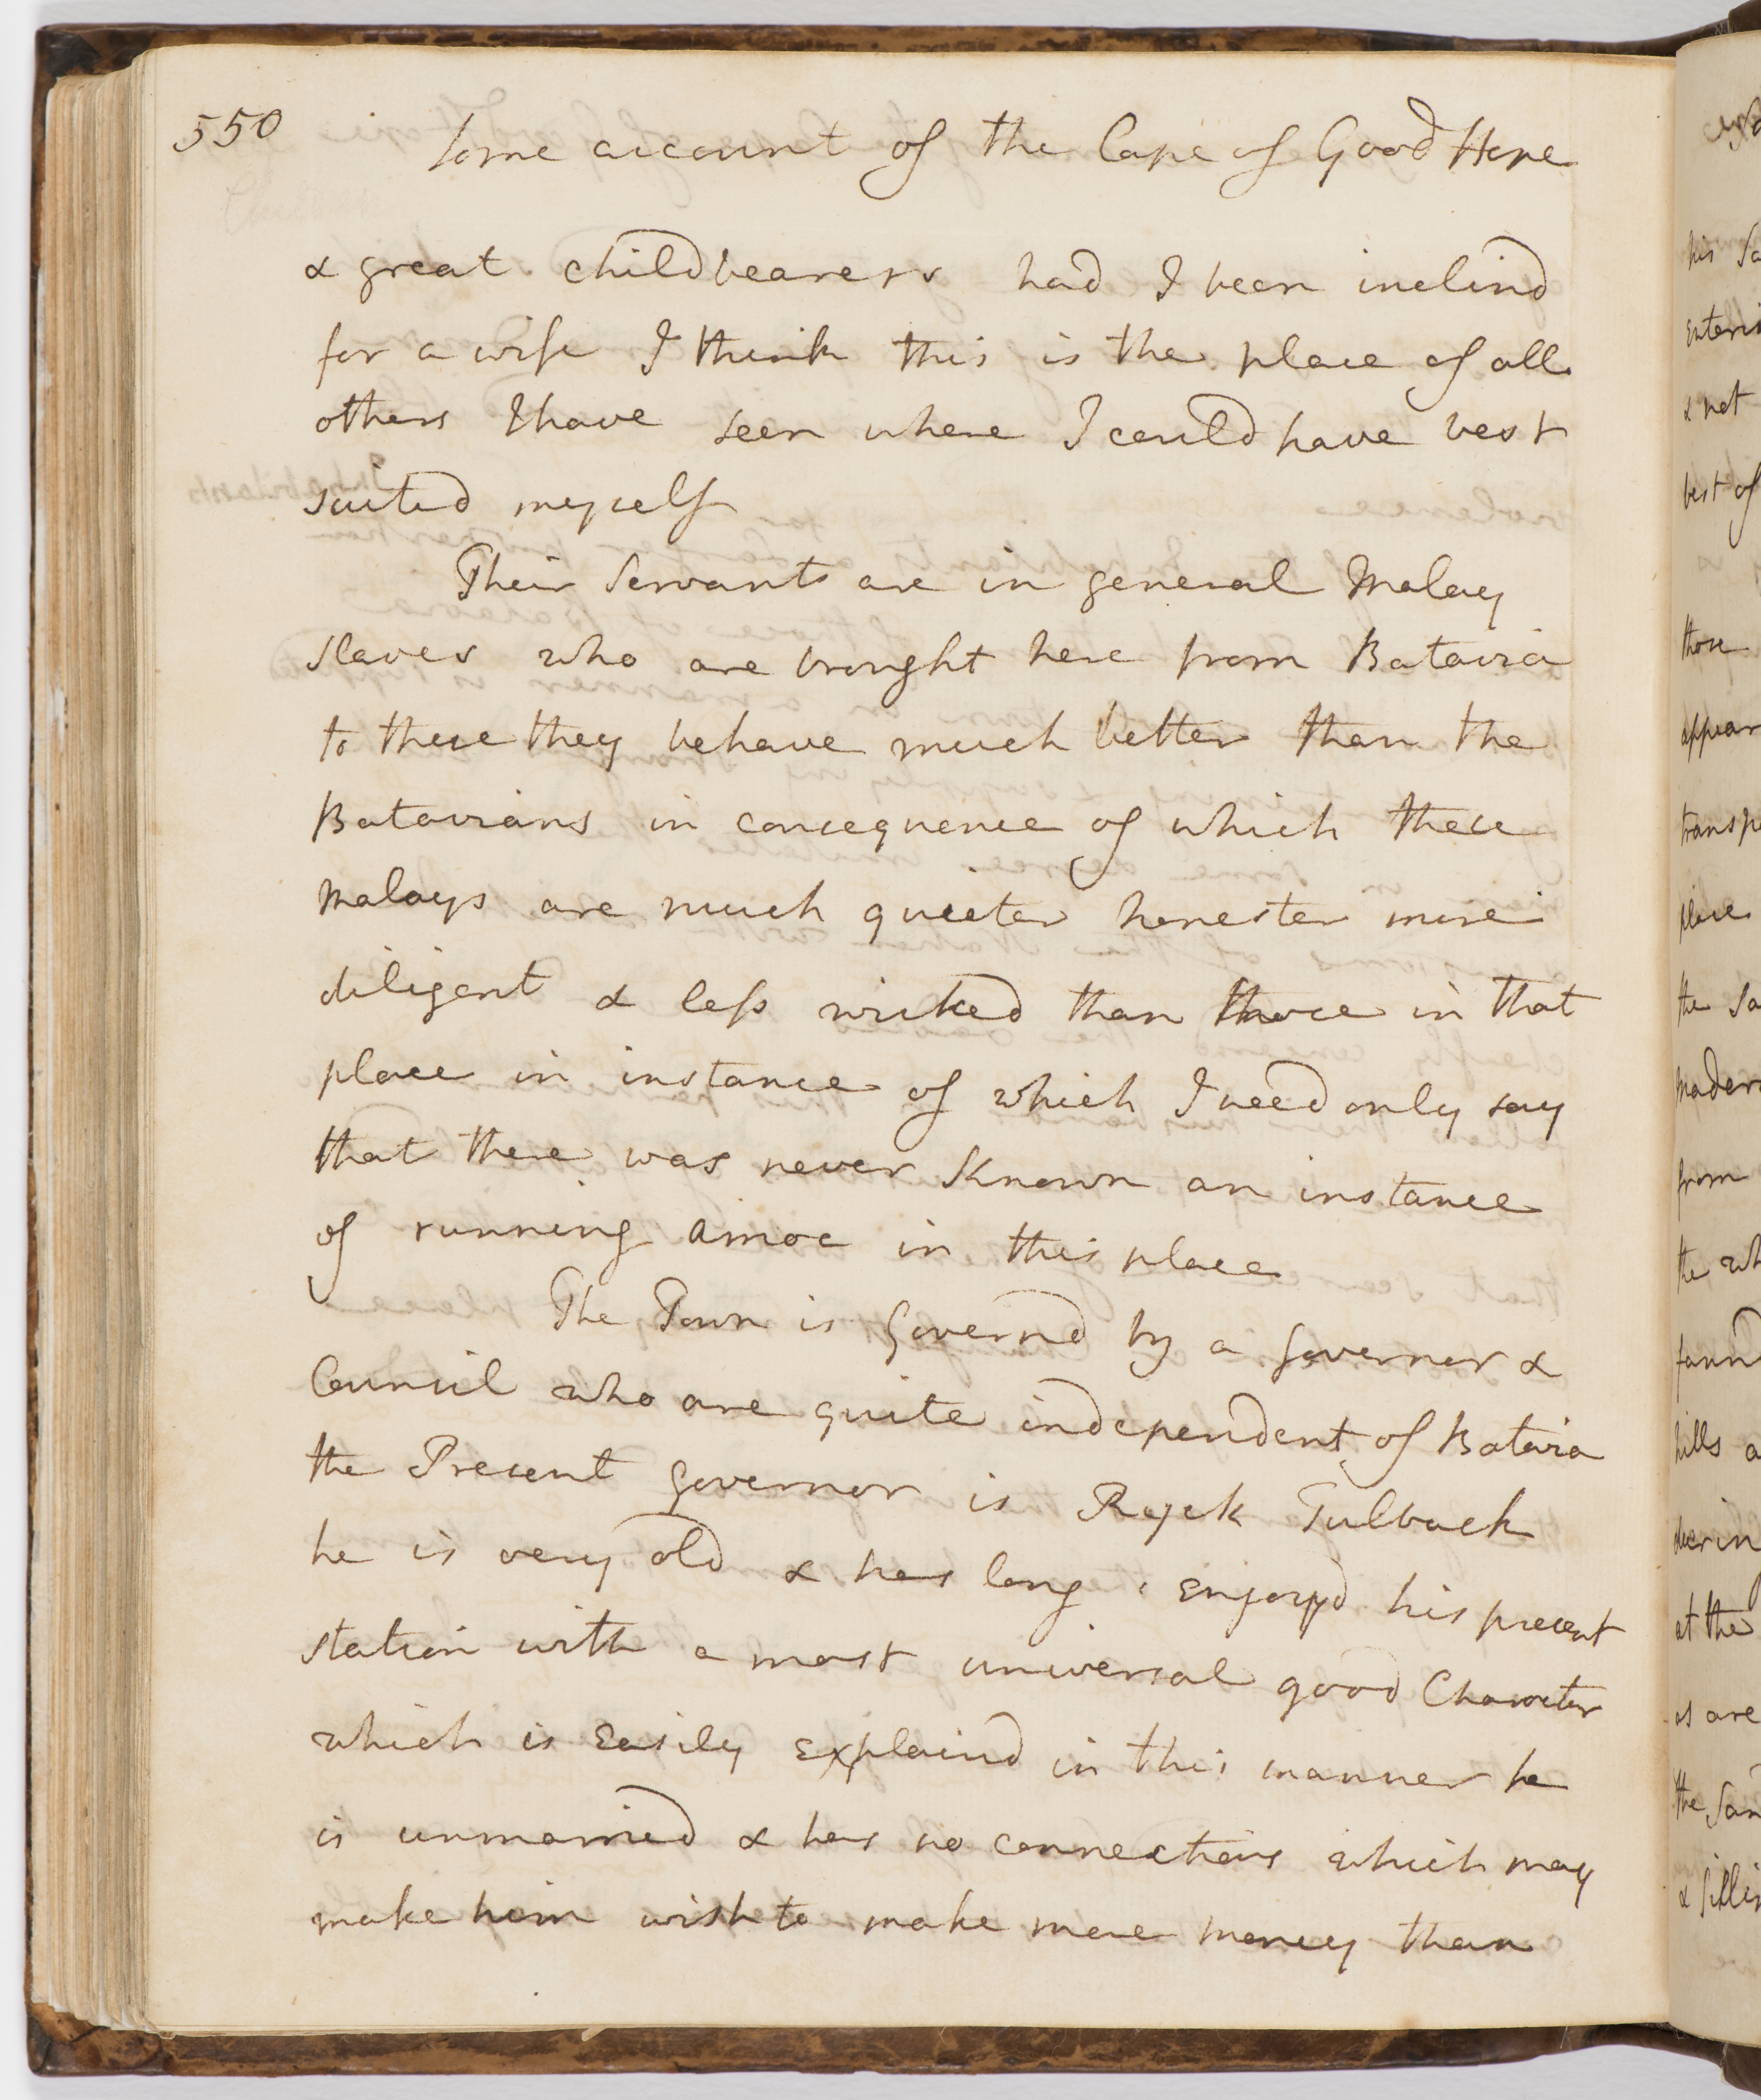 550
Some account of the Cape of Good Hope
& great childbearers had I been inclind
for a wife I think this is the place of all
others I have seen where I could have best
suited myself
Their Servants are in general Malay
slaves who are brought here from Batavia
to these they behave much better than the
Batavians in consequence of which these
Malays are much quieter honester more
diligent & less wicked than those in that
place in instance of which I need only say
that there was never Known an instance
of running amoc in this place
The Town is Governd by a Governor &
Council who are quite independent of Batavia
the Present Governor is Ryck Tulback
he is very old & has long enjoyd his present
station with a most universal good Character
which is Easily explaind in this manner he
is unmarried & has no connections which may
make him wish to make more money than
his
enteri
& not
best of
those
appear
transp
place
the
from
the wh
found
hills a
at the
as are
the